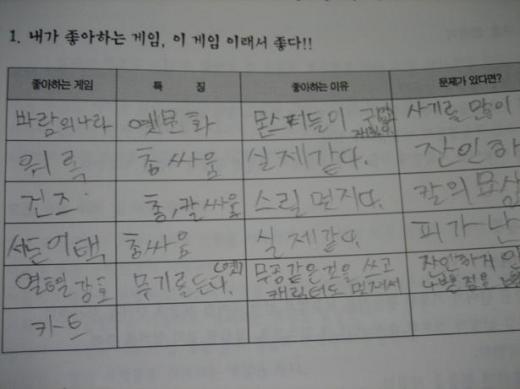 1. 내가 좋아하는 게임, 이 게임 이래서 좋다!!
좋아하는 게임 특 징 좋아하는 이유 문제가 있다면?
바람의나라 옛문화 몬스터들이 사기를 많이
워록 총싸움 실제같다. 잔인하
건즈 총,칼싸움 스릴 넘친다. 칼의
서든어택 총싸움 실제같다. 피가 난
열혈강호 무기로든다. 무공같은것을 쓰고 잔인하게
캐릭터도 멋져서 나쁜점을
카트